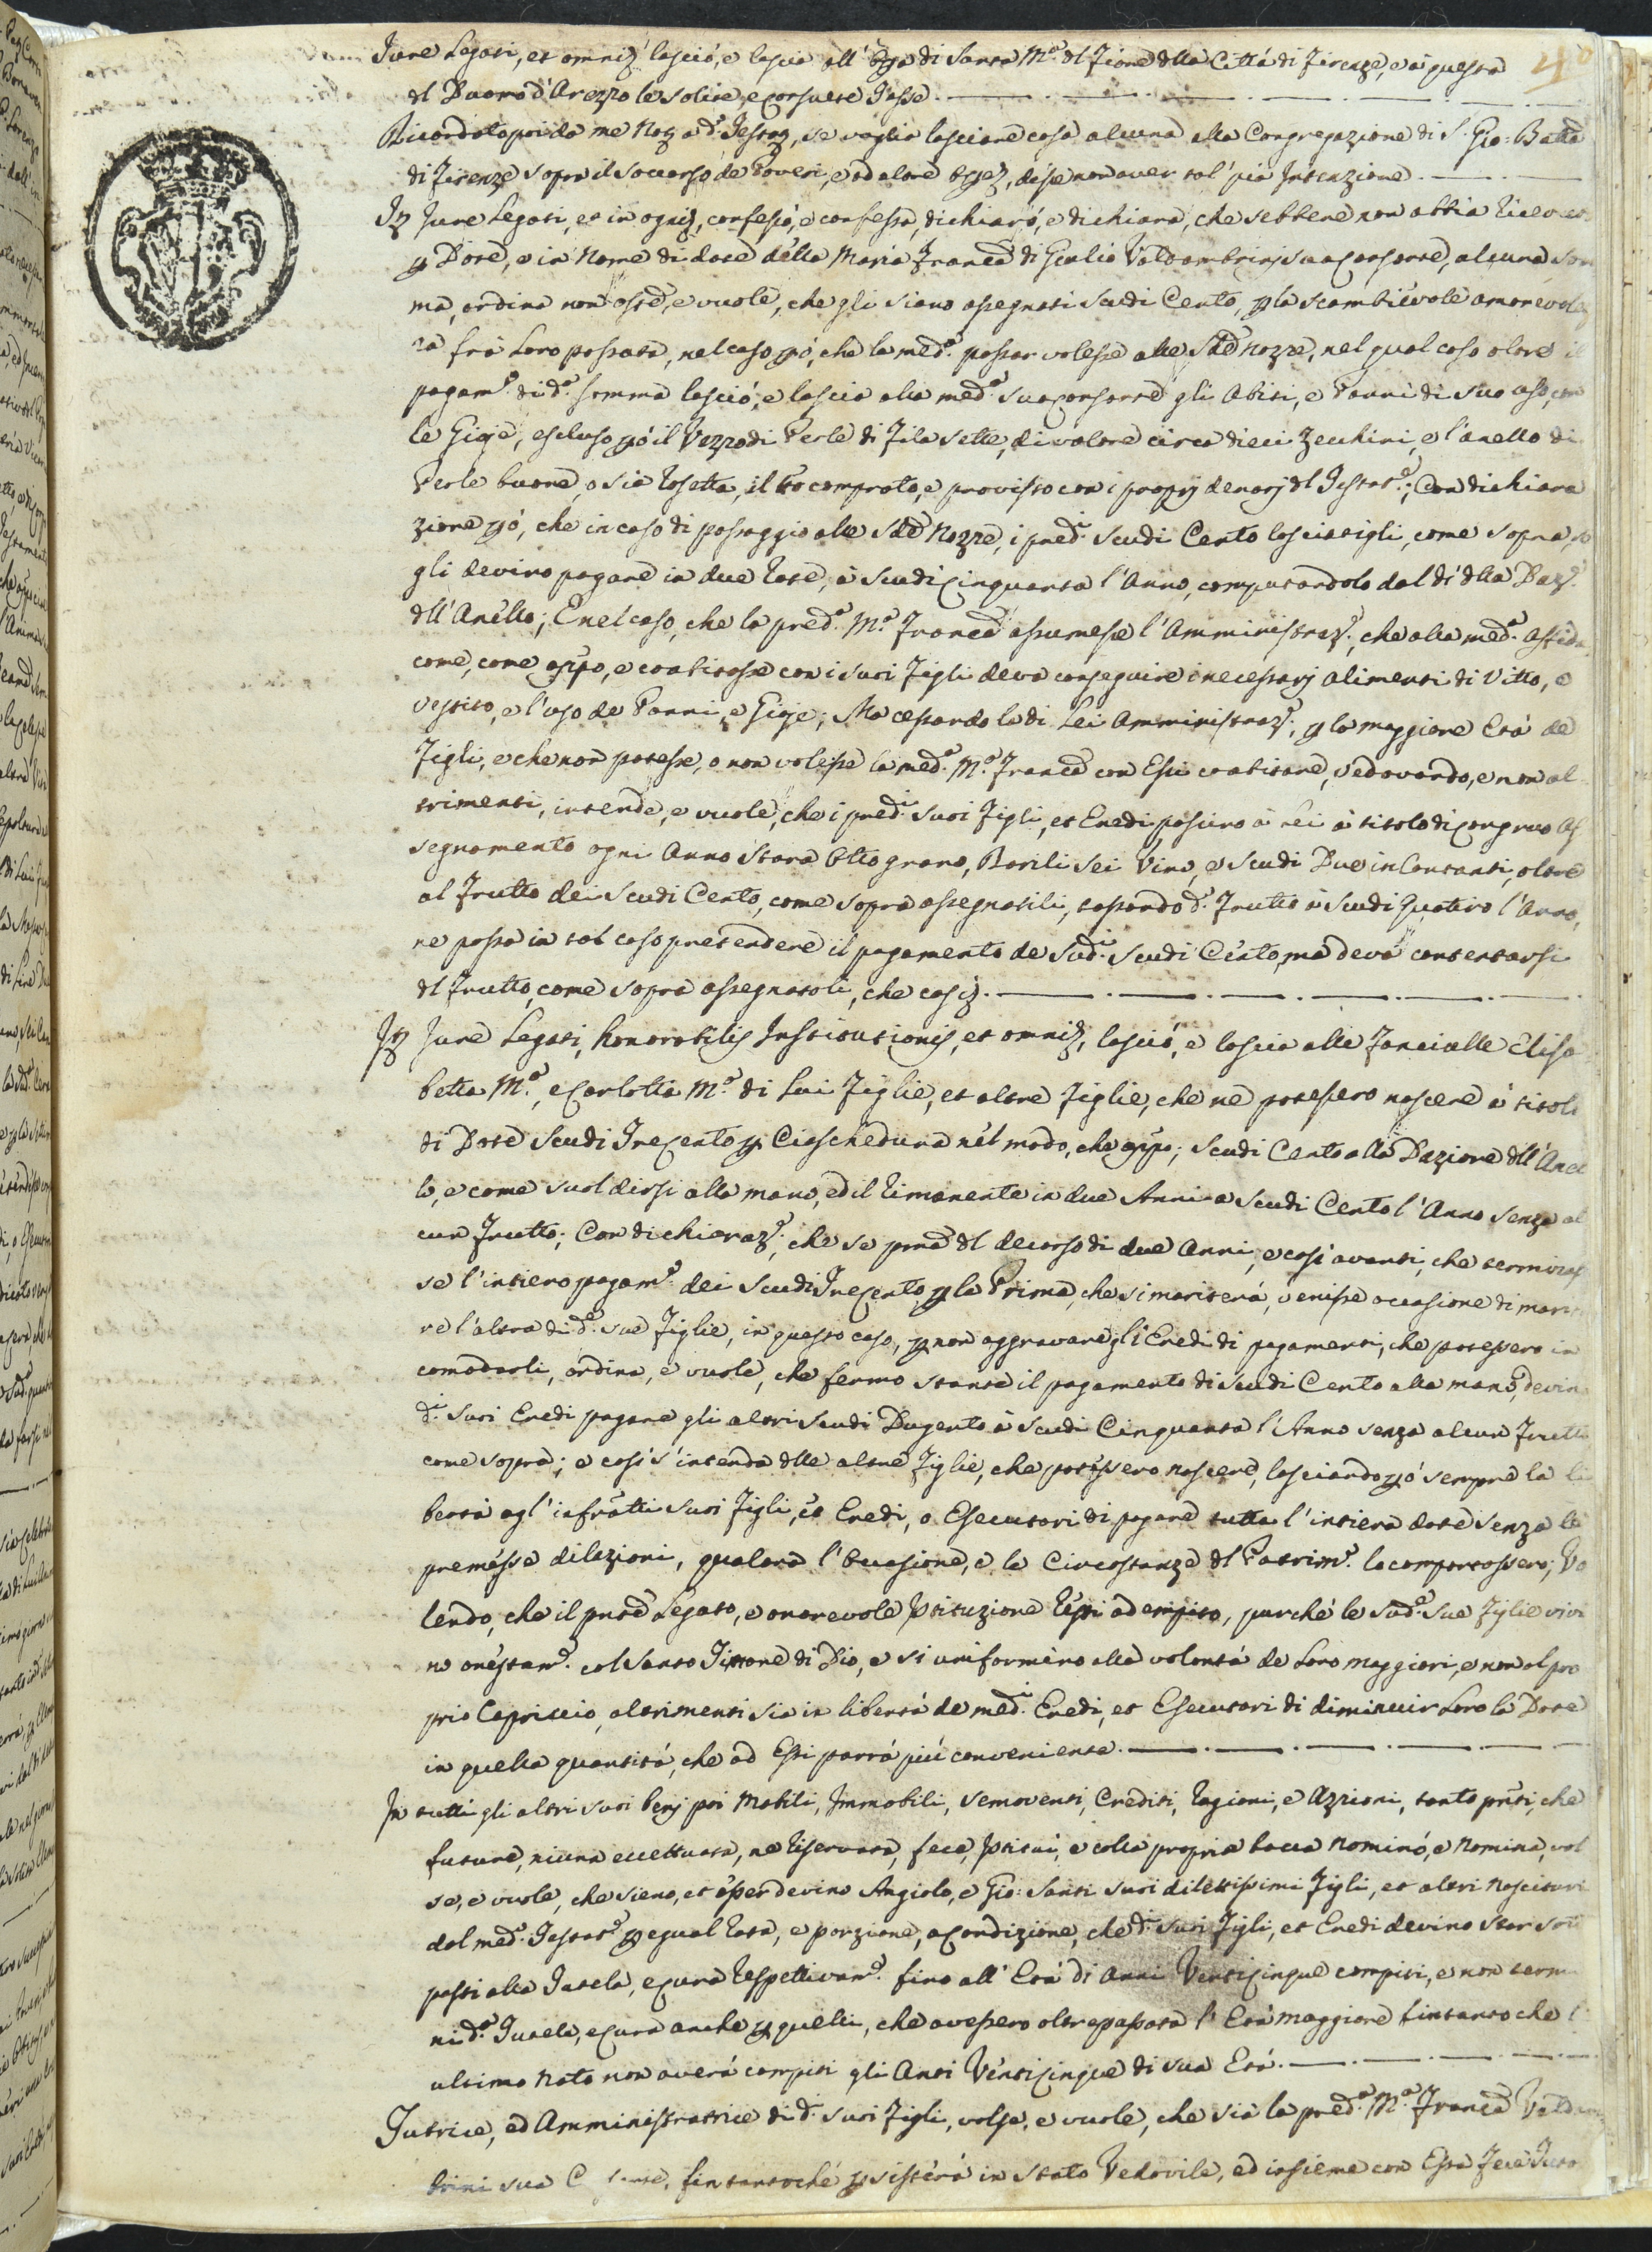 Jure Legati, et omni, lasciò, e lascia all' Opa di Santa Mª. dl Fiore dlla Città di Firenze, e a questa
dl Duomo d'Arezzo le solite, e consuete Tasse.
Ricordato poi da me Not. a d.° Testat., se voglia lasciare cosa alcuna alla Congregazione di S. Gio: Batta
di Firenze sopra il Soccorso de Poveri, e ad altre, disse non aver tal pia Intenzione.
It Jure Legati, et in ogni, confessò, e confessa, dichiarò, e dichiara, che sebbene non abbia
p Dote, e in Nome di dote della Maria Franca di Giulio Valdambrini sua Consorte, alcuna Som
ma, ordina non oste, e vuole, che gli siano assegnati Scudi Cento, p la scambievole amorevolez
za frà Loro passata, nel caso pò, che la med.ª passar volesse alle Sde Nozze, nel qual caso oltre il
pagam.° di d.ª somma lasciò, e lascia alla med.ª sua Consorte gli Abiti, e Panni di suo uso, con
le Gioje, escluso pò il Vezzo di Perle di Fila sette, di valore circa dieci Zecchini, e l'anello di
Perle buone, o sia Rosetta, il tto comprato, e provisto con i proprj denarj dl Testat.e; Con dichiara
zione pò, che in caso di passaggio alle Sde Nozze, i pred.i Scudi Cento lasciatigli, come sopra,
gli devino pagare in due Rate, à Scudi Cinquanta l'Anno, computandolo dal dì dlla Daz.e
dll'Anello; E nel caso, che la pred.ª Mª. Franca assumesse l'Amministraz.e, che alla med.ª affida,
come, come app°, e coabitasse con i suoi Figli deva conseguire i necessarj alimenti di Vitto, e
vestito, e l'uso de Panni, e Gioje; Ma cessando la di Lei Amministraz.e, p la maggiore Età de
Figli, e che non potesse, o non volesse la med.ª Mª. Franca con Essi coabitare, vedovando, e non al
trimenti, intende, e vuole, che i pred.i suoi Figli, et Eredi passino à Lei à titolo di congruo As
segnamento ogni Anno Stara Otto grano, Barili Sei Vino, e Scudi Due in Contanti, oltre
al Frutto dei Scudi Cento, come sopra assegnatili, tassando d.° Frutto à Scudi Quattro l'Anno,
ne possa in tal caso pretendere il pagamento de Sud.i Scudi Cento, ma deva contentarsi
dl Frutto, come sopra assegnatoli, che così.
It Jure Legati, honorabilis Institutionis, et omni, lasciò, e lascia alle Fanciulle Elisa
betta Mª., e Carlotta Mª. di Lui Figlie, et altre Figlie, che ne potessero nascere à titolo
di Dote Scudi Trecento p Ciascheduna nel modo, che app°; Scudi Cento alla Dazione dll'Anel
lo, e come suol dirsi alla mano, ed il rimanente in due Anni a Scudi Cento l'Anno senza al
cun Frutto; Con dichiaraz.e, che se pma dl decorso di due Anni, e così avanti, che terminas
se l'intiero pagam.° dei Scudi Trecento p la Prima, che si mariterà, venisse occasione di marita
re l'altra di d.e sue Figlie, in questo caso, p non aggravare gli Eredi di pagamenti, che potessero in
comodarli, ordina, e vuole, che fermo stante il pagamento di Scudi Cento alla mano, devino
d.i suoi Eredi pagare gli altri Scudi Dugento à Scudi Cinquanta l'Anno senza alcun Frutto
come sopra; e così s'intenda dlle altre Figlie, che potessero nascere, lasciando pò sempre la li
bertà agl'infratti suoi Figli, et Eredi, o Esecutori di pagare tutta l'intiera dote senza le
premesse dilazioni, qualora l'Occasione, e le Circostanze dl Patrim.° lo comportassero; Vo
lendo, che il pnte Legato, e onorevole Istituzione resti adempito, purchè le Sud.e Sue Figlie vivi
no onestam.e col Santo Timore di Dio, e si uniformino alla volontà de Loro Maggiori, e non al pro
prio Capriccio, altrimenti sia in libertà de med.i Eredi, et Esecutori di diminuir Loro la Dote
in quella quantità, che ad Essi parrà più conveniente.
In tutti gli altri suoi benj poi Mobili, Immobili, Semoventi, Crediti, Ragioni, e Azzioni, tanto pnti, che
future, niuna eccettuata, ne riservata, fece, Istituì, e colla propria bocca Nominò, e Nomina, vol
se, e vuole, che sieno, et esser devino Angiolo, e Gio: Santi suoi dilettissimi Figli, et altri Nascituri
dal med.° Testat.e p egual rata, e porzione, a Condizione, che d.i suoi Figli, et Eredi devino star sotto
posti alla Tutela, e Cura respettivam.e fino all'Età di Anni Venticinque compiti, e non termi
ni d.ª Tutela, e Cura anche p quelli, che avessero oltrepassata l'Età maggiore fintanto che l'
ultimo Nato non averà compiti gli Anni Venticinque di sua Età.
Tutrice, ed Amministratrice di d.i suoi Figli, volse, e vuole, che sia la pred.ª Mª. Franca Valdam
brini sua fintantochè psisterà in Stato Vedovile, ed insieme con Essa Fece